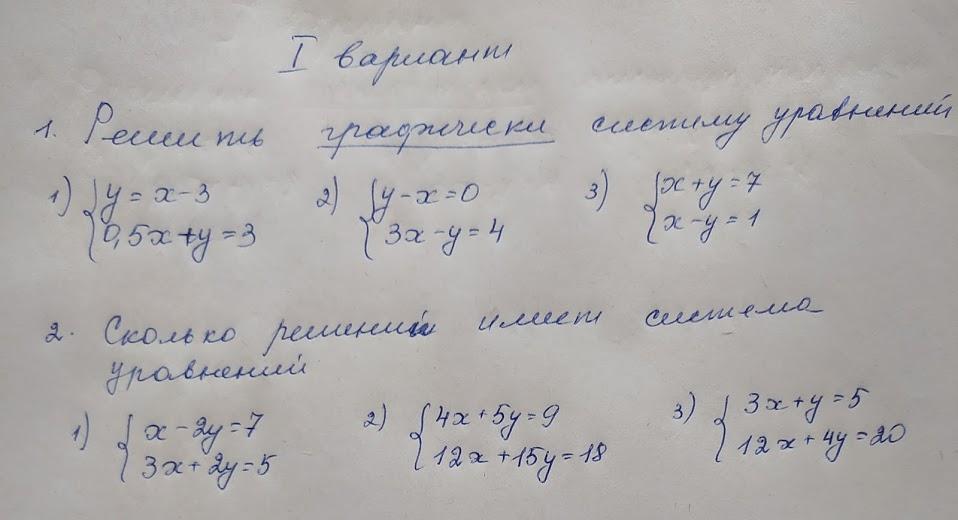 I вариант
1. Решить графически систему уравнений
1) { y = x - 3 2) { y - x = 0 3) { x + y = 7
0,5x + y = 3 3x - y = 4 x - y = 1
2. Сколько решений имеет система
уравнений
1) { x - 2y = 7 2) { 4x + 5y = 9 3) { 3x + y = 5
3x + 2y = 5 12x + 15y = 18 12x + 4y = 20